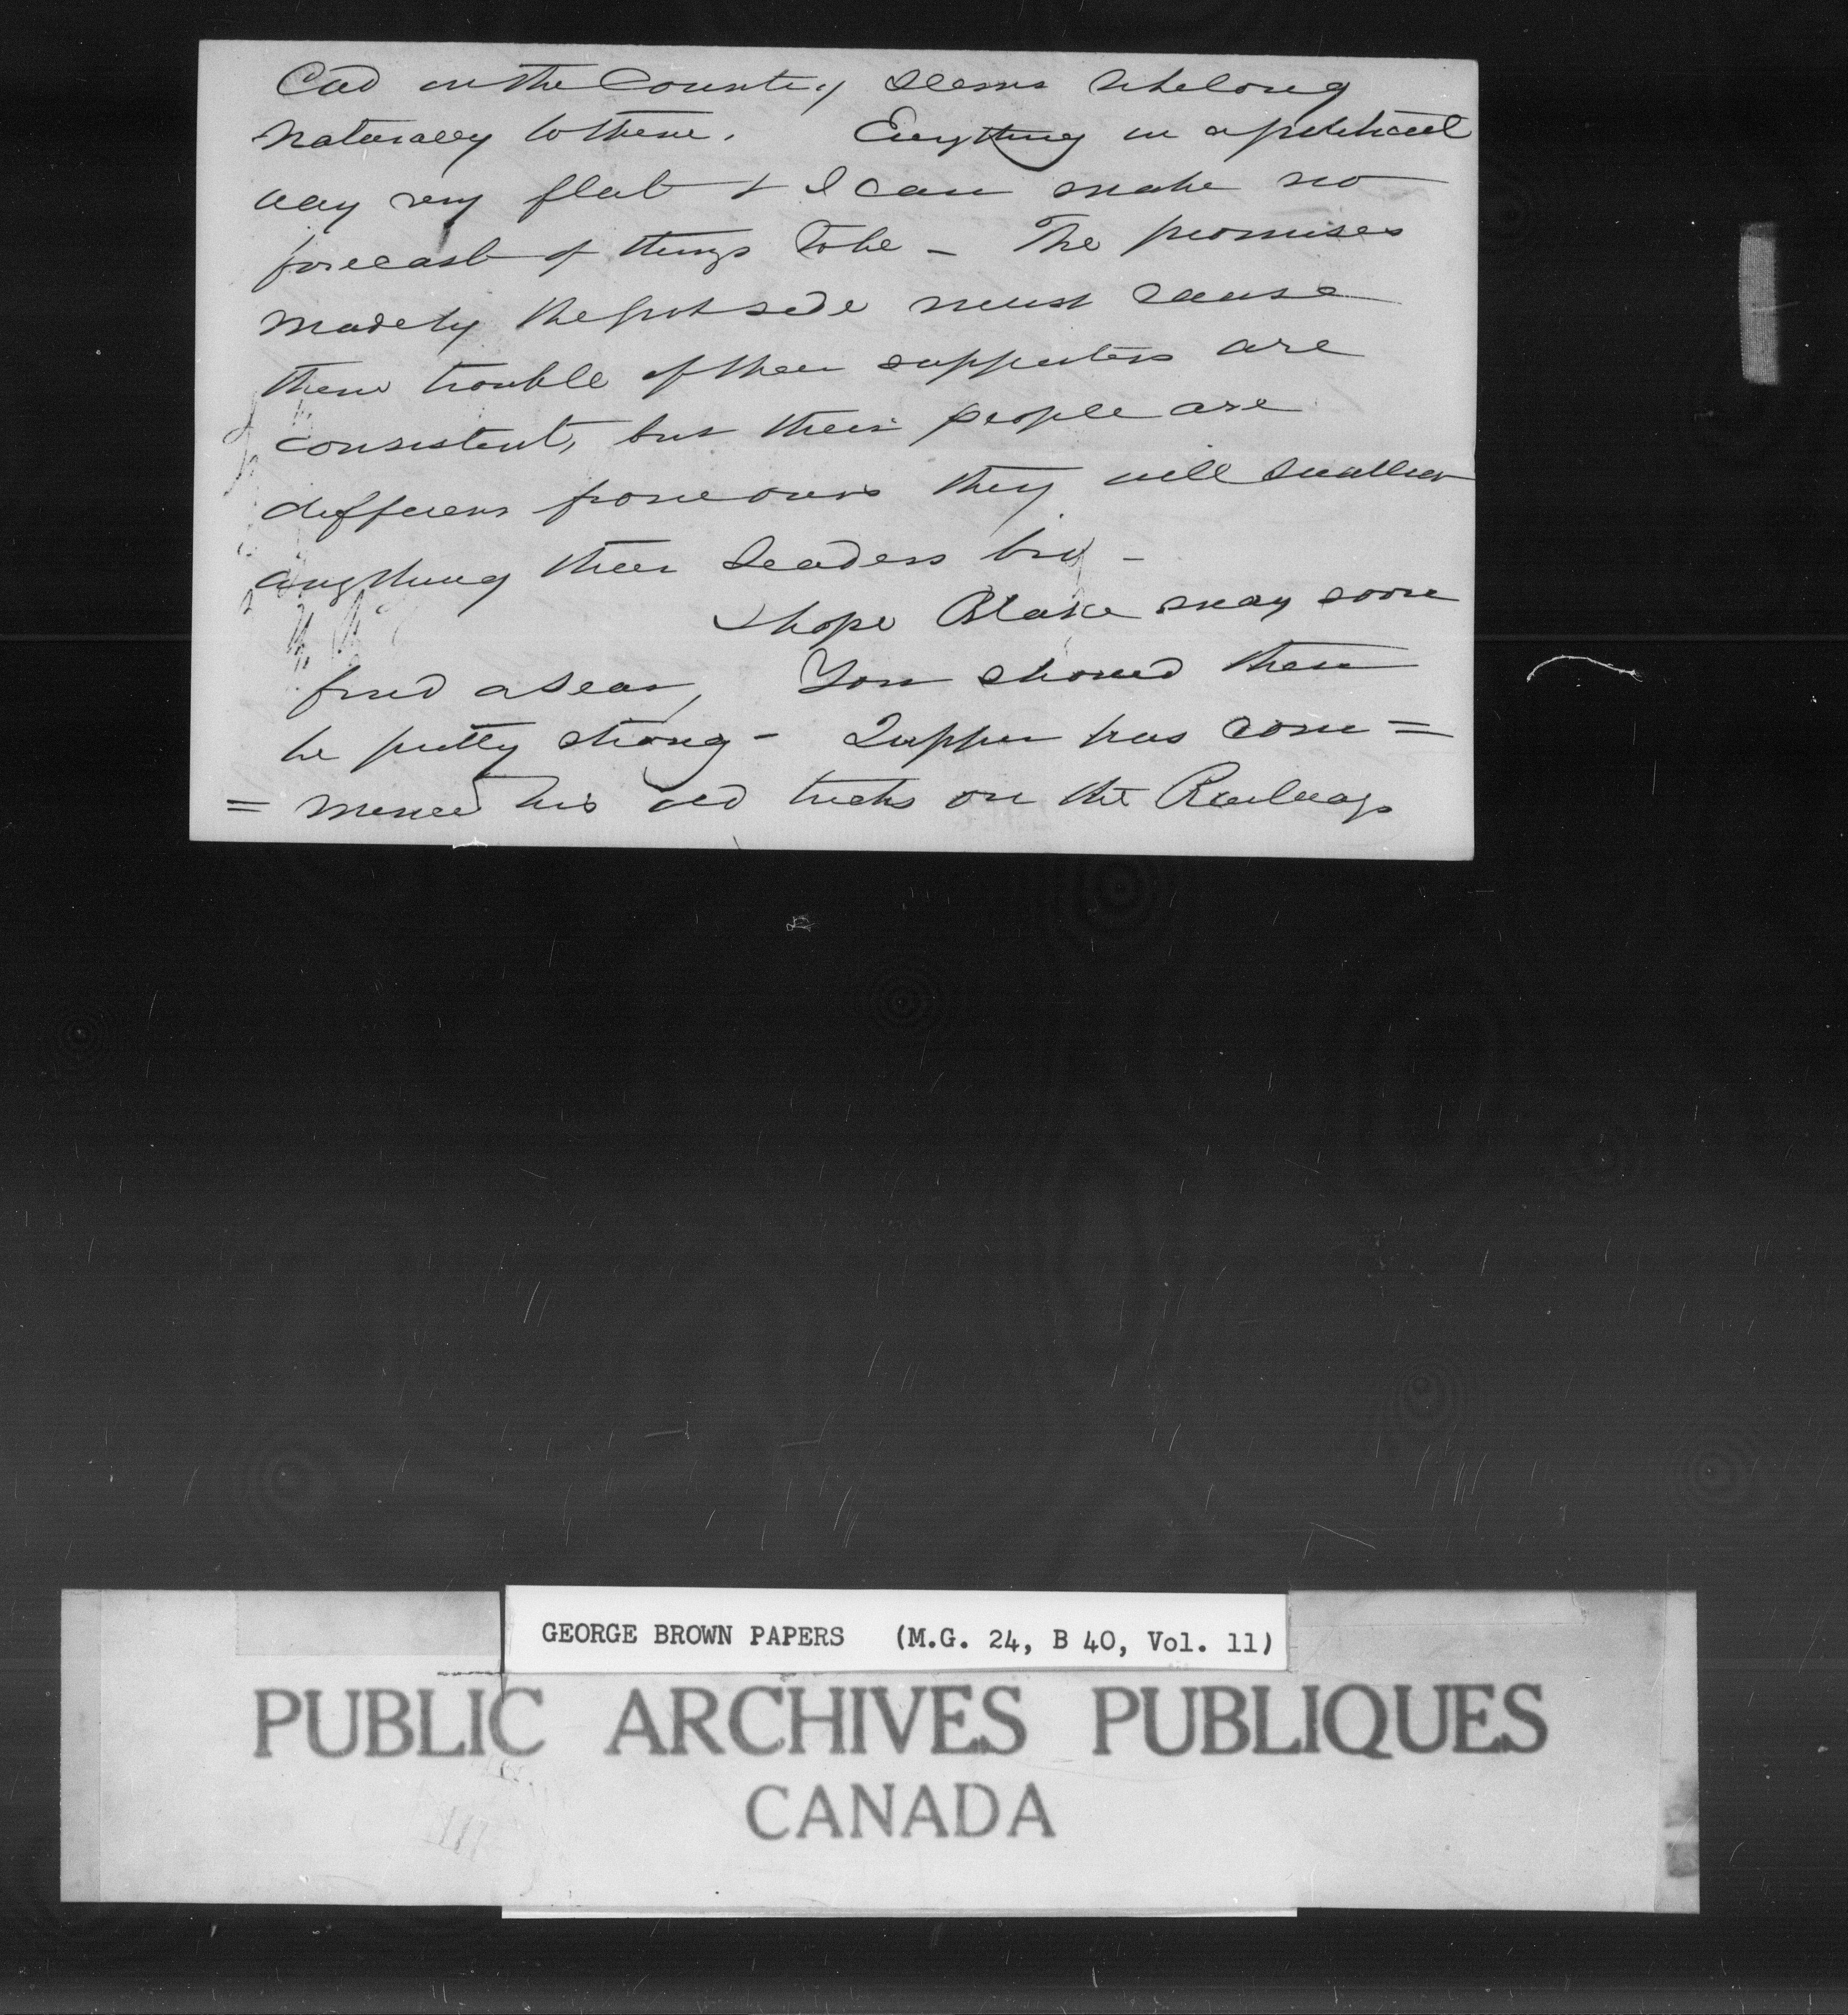 Cad in the Country seems to belong
naturally to them. Everything in a political
way very flat & I can make no
forecast of things to be - The promises
made by the other side must cause
them trouble if their supporters are
consistent, but their people are
different from ours they will swallow
anything their leaders bid -
I hope Blake may soon
find a seat, You should then
be pretty strong - Tupper has com =
= menced his old tricks on the Railways
GEORGE BROWN PAPERS (M.G. 24, B 40, Vol. 11)
PUBLIC ARCHIVES PUBLIQUES
CANADA